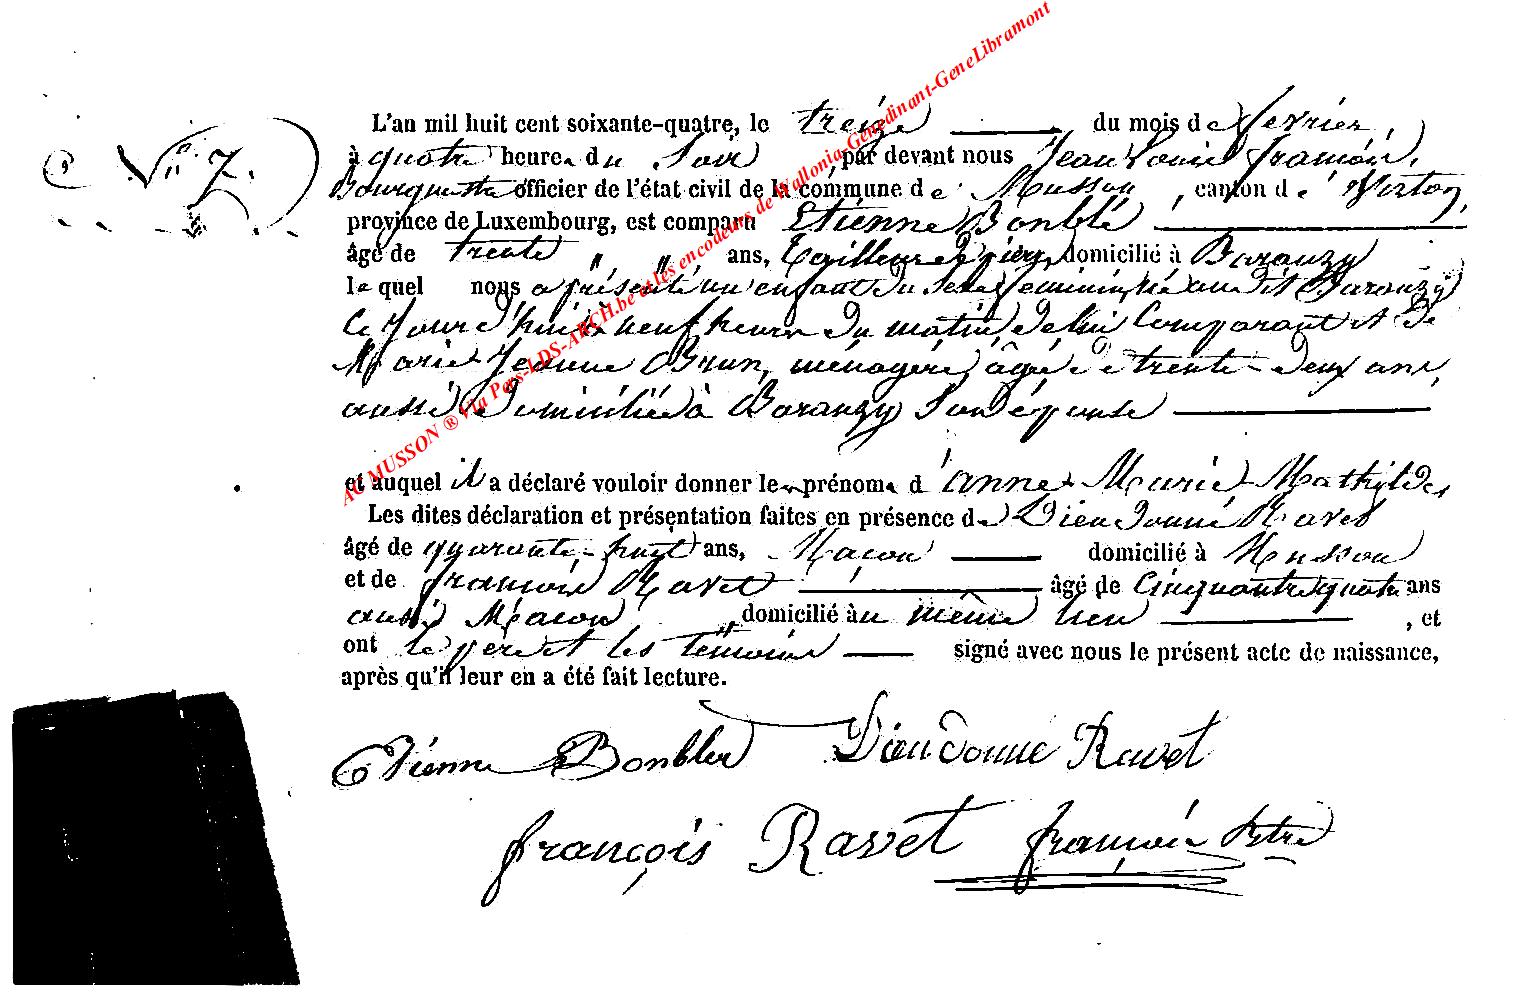 N° 7.
L'an mil huit cent soixante-quatre, le treize du mois de février,
à quatre heures du soir par devant nous Jean Louis François
officier de l'état civil de la commune de Musson, canton de Virton,
province de Luxembourg, est comparu Etienne Bonblé
âgé de trente ans, tailleur de pierre, domicilié à Baranzy
lequel nous a présenté un enfant du sexe féminin, né audit Baranzy
ce jourd'hui à neuf heures du matin, de lui comparant et de
Marie Jeanne Brun, ménagère, âgée de trente-deux ans,
aussi domiciliée à Baranzy son épouse
et auquel il a déclaré vouloir donner les prénoms d'anne Marie Mathilde
Les dites déclaration et présentation faites en présence de Dieudonné Ravet
âgé de quarante-huit ans, Maçon domicilié à Musson
et de françois Ravet âgé de cinquante quatre ans
aussi Maçon domicilié au même lieu, et
ont le père et les témoins signé avec nous le présent acte de naissance,
après qu'il leur en a été fait lecture.
Etienne Bonbler Dieudonné Ravet
françois Ravet
AC MUSSON ® Via Pers-LDS-ARCH.be et les encodeurs de Wallonia-Genedinant-GeneLibramont